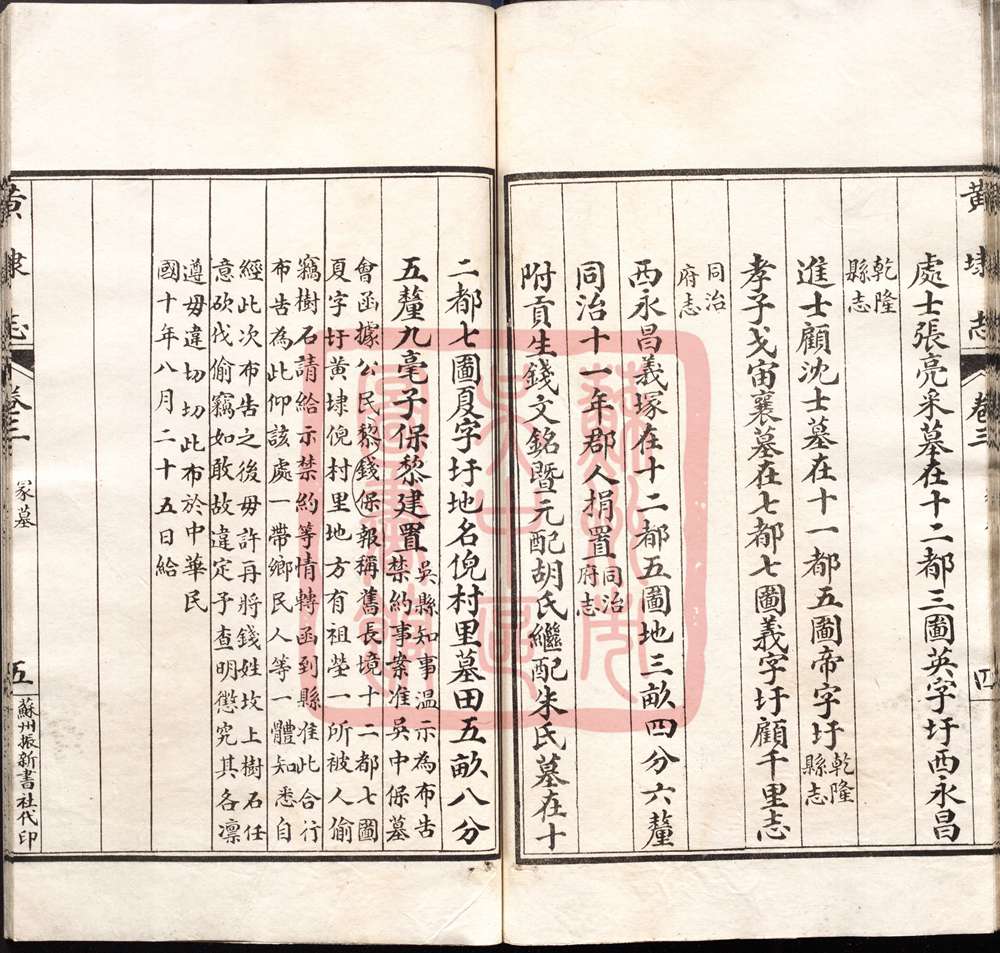 黃埭志
卷三
四
處士張亮采墓在十二都三圖英字圩西永昌
乾隆
縣志
進士顧沈士墓在十一都五圖帝字圩乾隆
縣志
孝子戈宙襄墓在七都七圖義字圩顧千里志
同治
府志
西永昌義塚在十二都五圖地三畝四分六釐
同治十一年郡人捐置同治
府志
附貢生錢文銘暨元配胡氏繼配朱氏墓在十
二都七圖夏字圩地名倪村里墓田五畝八分
五釐九毫子保黎建置吳縣知事溫示為布告
禁約事案准吳中保墓
會函據公民黎錢保報稱舊長境十二都七圖
頁字圩黃埭倪村里地方有祖塋一所被人偷
竊樹石請給示禁約等情轉函到縣准此合行
布告為此仰該處一帶鄉民人等一體知悉自
經此次布告之後毋許再將錢姓坟上樹石任
意砍伐偷竊如敢故違定予查明懲究其各凛
遵毋違切切此布於中華民
國十年八月二十五日給
黃埭志
卷三
冢墓
五
蘇州振新書社代印